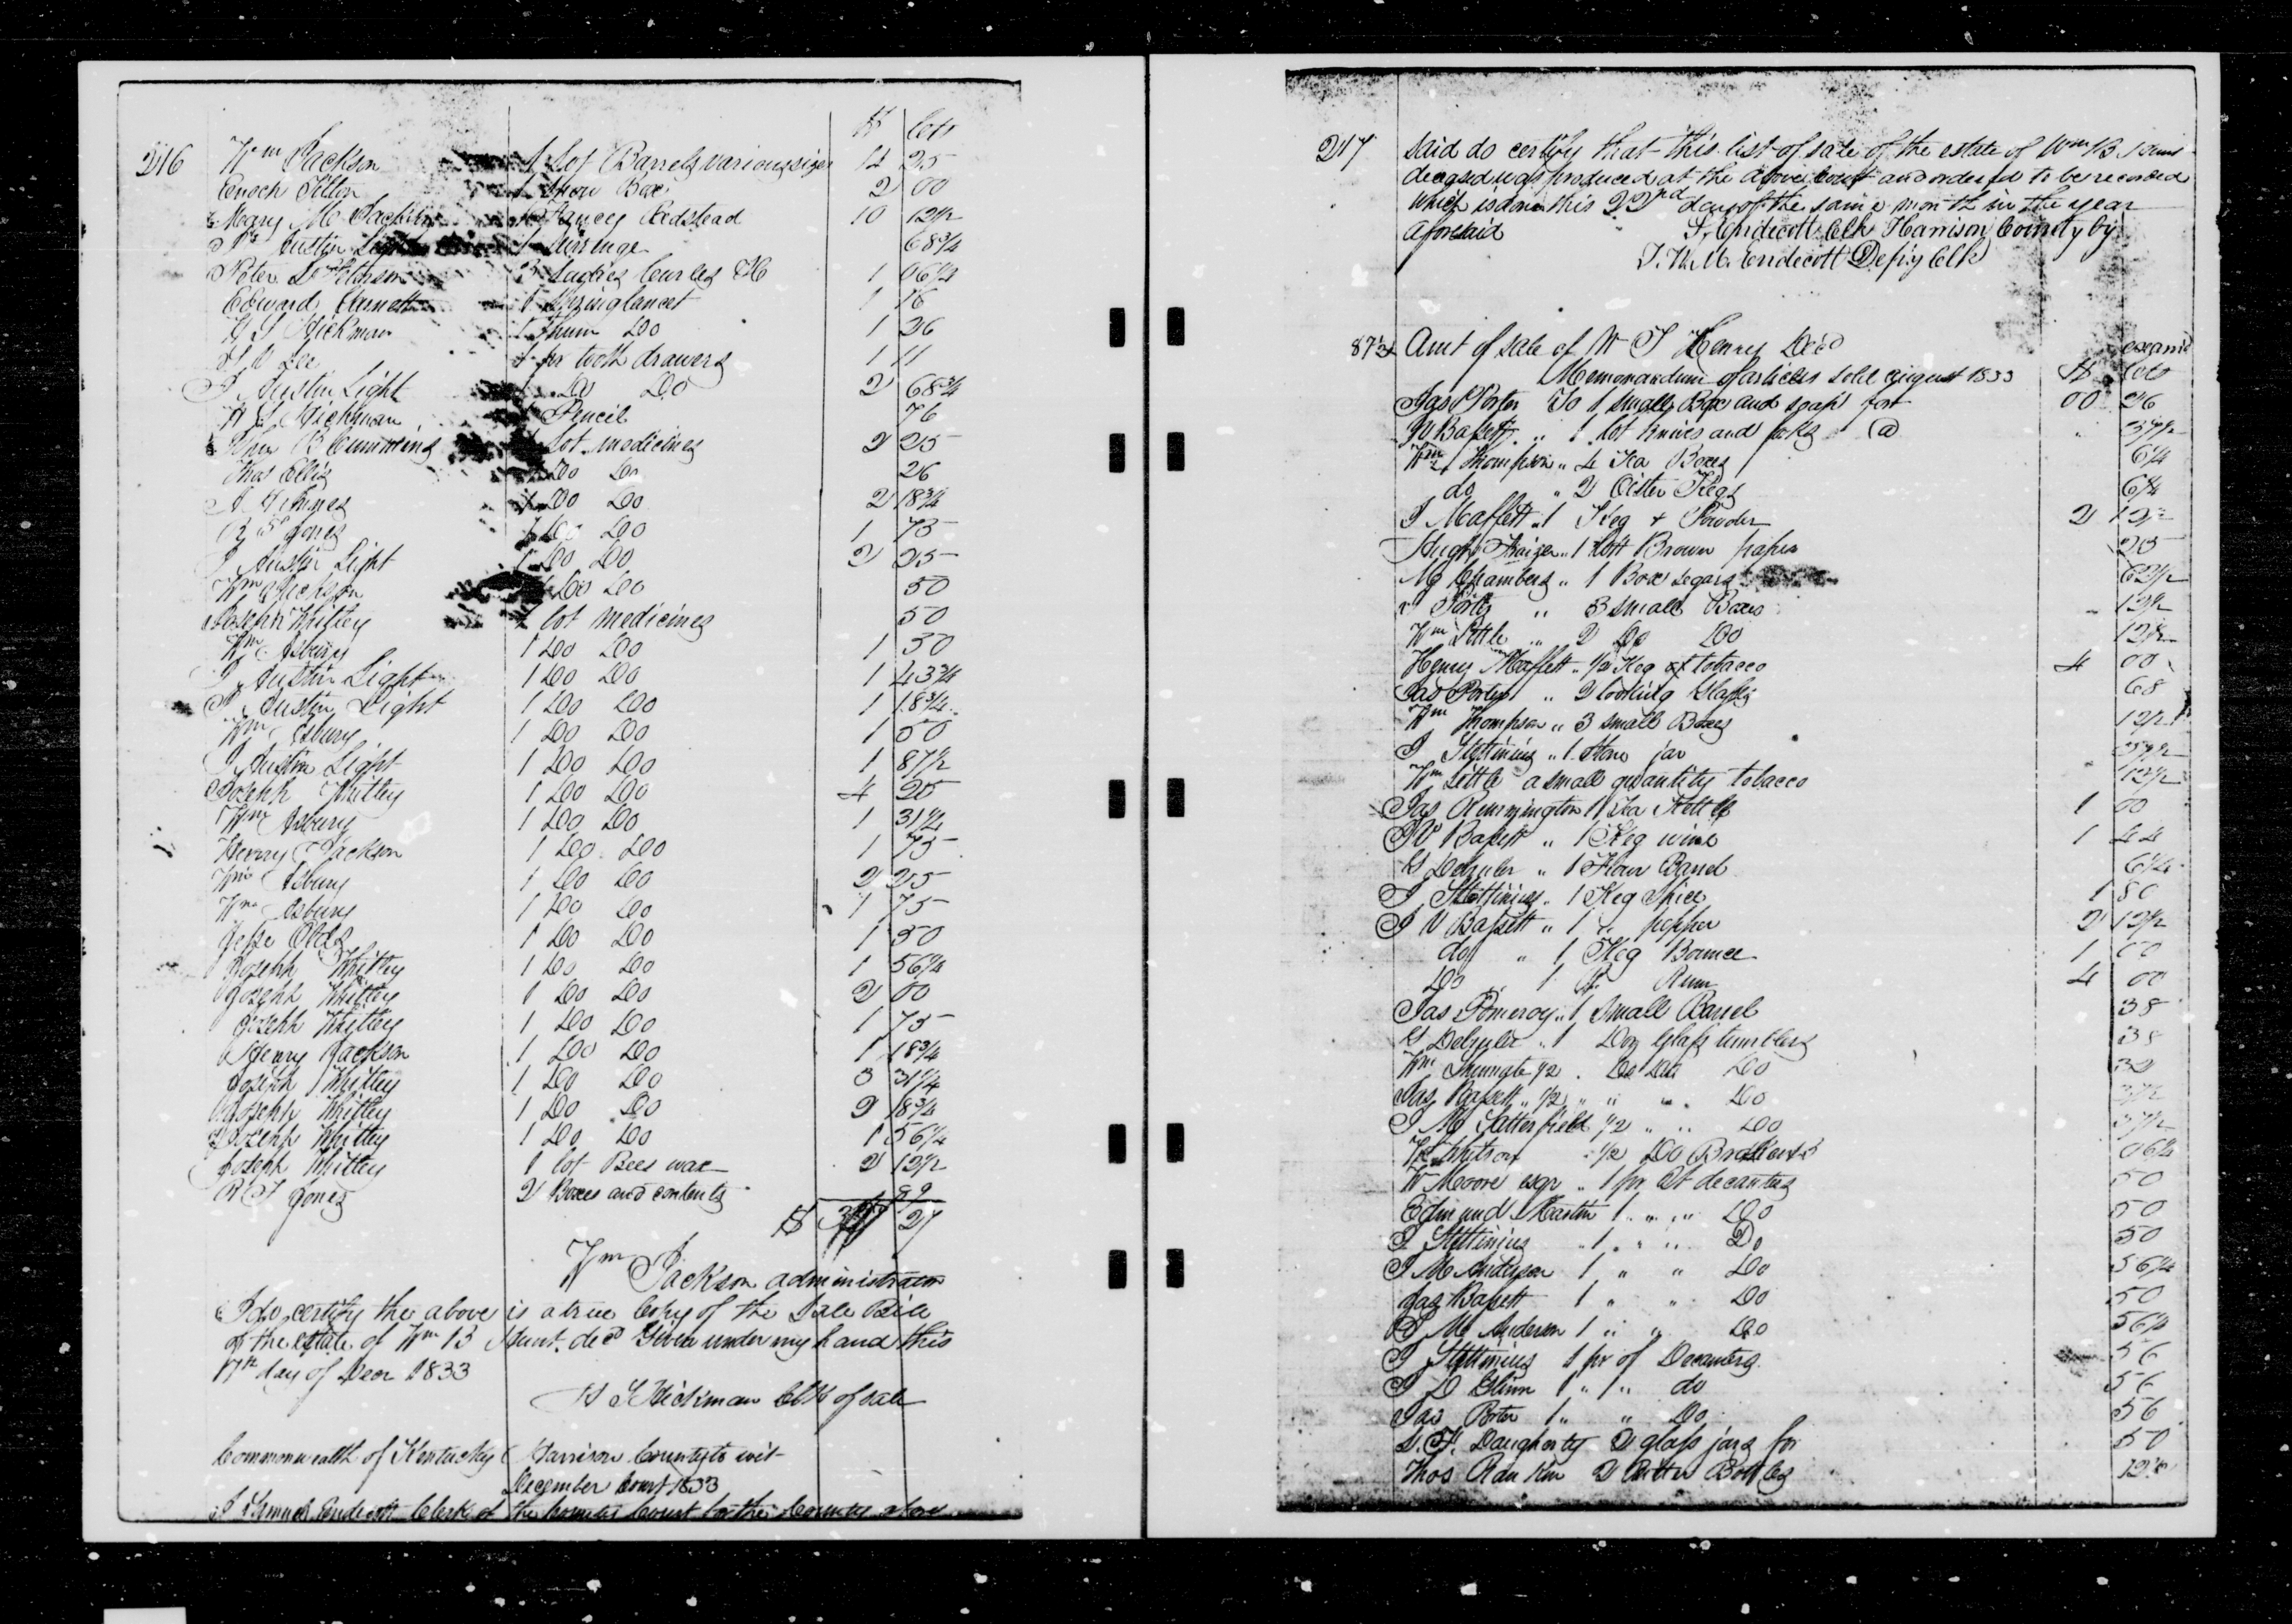 $ Cts
216 Wm Jackson 1 Lot Barrels various sizes 4 25
Enoch 1 Box 2 00
Mary Mc 1 Fancey Bedstead 10 12 1/2
Austin Light 1 Sirrenge 68 3/4
Peter 1 06 1/4
Edward 1 Spring lancet 1 16
H S Hickman 1 Thum Do 1 26
Lee 1 pr tooth drawers 1 11
J Austin Light 1 Do Do 2 68 3/4
H S Hickman 1 Pencil 76
Wm R Cummins 1 Lot medicines 2 25
Thos Ellis 1 Do Do 26
1 Do Do 2 18 3/4
R S Jones 1 Do Do 1 75
J Austin Light 1 Do Do 2 25
Wm Jackson 1 Do Do 50
Joseph Whitley 1 lot medicines 50
Wm Asbury 1 Do Do 1 30
J Austin Light 1 Do Do 1 43 3/4
J Austin Light 1 Do Do 1 18 3/4
Wm Asbury 1 Do Do 1 50
J Austin Light 1 Do Do 1 87 1/2
Joseph Whitley 1 Do Do 4 25
Wm Asbury 1 Do Do 1 31 1/4
Henry Jackson 1 Do Do 1 75
Wm Asbury 1 Do Do 2 25
Wm Asbury 1 Do Do 1 75
Jesse Olds 1 Do Do 1 50
Joseph Whitley 1 Do Do 1 56 1/4
Joseph Whitley 1 Do Do 2 00
Joseph Whitley 1 Do Do 1 75
Henry Jackson 1 Do Do 1 18 3/4
Joseph Whitley 1 Do Do 3 31 1/4
Joseph Whitley 1 Do Do 2 18 3/4
Joseph Whitley 1 Do Do 1 56 1/4
Joseph Whitley 1 lot Bees wax 2 12 1/2
R S Jones 2 Boxes and contents 89
$ 27
Wm Jackson administrator
I do certify the above is a true Copy of the Sale Bill
of the estate of Wm B Hunt decd Given under my hand this
17th day of Decr 1833
H S Hickman Clk of sale
Commonwealth of Kentucky Harrison County to wit
December Court 1833
I Samuel Endicott Clerk of the County Court for the County afore
217 said do certify that this list of sale of the estate of Wm B Hunt
deceased was produced at the above court and ordered to be recorded
which is done this 22nd day of the same month in the year
aforesaid S. Endicott Clk Harrison County by
J. W. M. Endicott Depty Clk
Amt of sale of W T Henry Decd
Memorandum of articles sold august 1833 $ Cts
Jas Porter To 1 small Box and soap for 00 26
J V Bassett " 1 lot knives and forks @ 37 1/2
Wm Thompson " 4 Tea Boxes 6 1/4
do " 2 Oister Kegs 6 1/4
J Maffett " 1 Keg & Powder 2 12 1/2
Hugh " 1 Lott Brown paper 25
Chambers " 1 Box segars 62 1/2
" 3 small Boxes 12 1/2
Wm Little " 2 Do Do 12 1/2
Henry Maffett " 1/2 Keg of tobacco 4 00
Jas Porter " 2 looking Glasses 68
Wm Thompson " 3 small Boxes 12 1/2
J Stettinius " 1 Stone jar 37 1/2
Wm Little a small quantity tobacco 12 1/2
Jas Remmington 1 Tea Kettle 1 00
J V Bassett " 1 Keg wine 1 44
" 1 Flour Barrel 6 1/4
J Stettinius " 1 Keg Spice 1 80
J V Bassett " 1 " pepper 2 12 1/2
do " 1 Keg Bounce 1 00
Do 1 Rum 4 00
Jas Pomeroy " 1 Small Barrel 38
" 1 Doz Glass tumblers 38
Wm 1/2 " Do Do Do 32
Jas Bassett " 1/2 " " " Do 37 1/2
J M Satterfield 1/2 " " Do 37 1/2
1/2 Do 06 1/4
W Moore esqr " 1 pr Qt decanters 50
Edmund Martin 1 " " " Do 50
J Stettinius " 1 " " " Do 50
J M Anderson 1 " " Do 56 1/4
Jas Bassett 1 " " Do 50
J M Anderson 1 " " Do 56 1/4
J Stettinius 1 pr of Decanters 56
J D Glinn 1 " 1 " do 56
Jas Porter 1 " " Do 56
S. F. Daugherty 2 glass jars for 50
Thos Rankin 2 Bitter Bottles 12 1/2